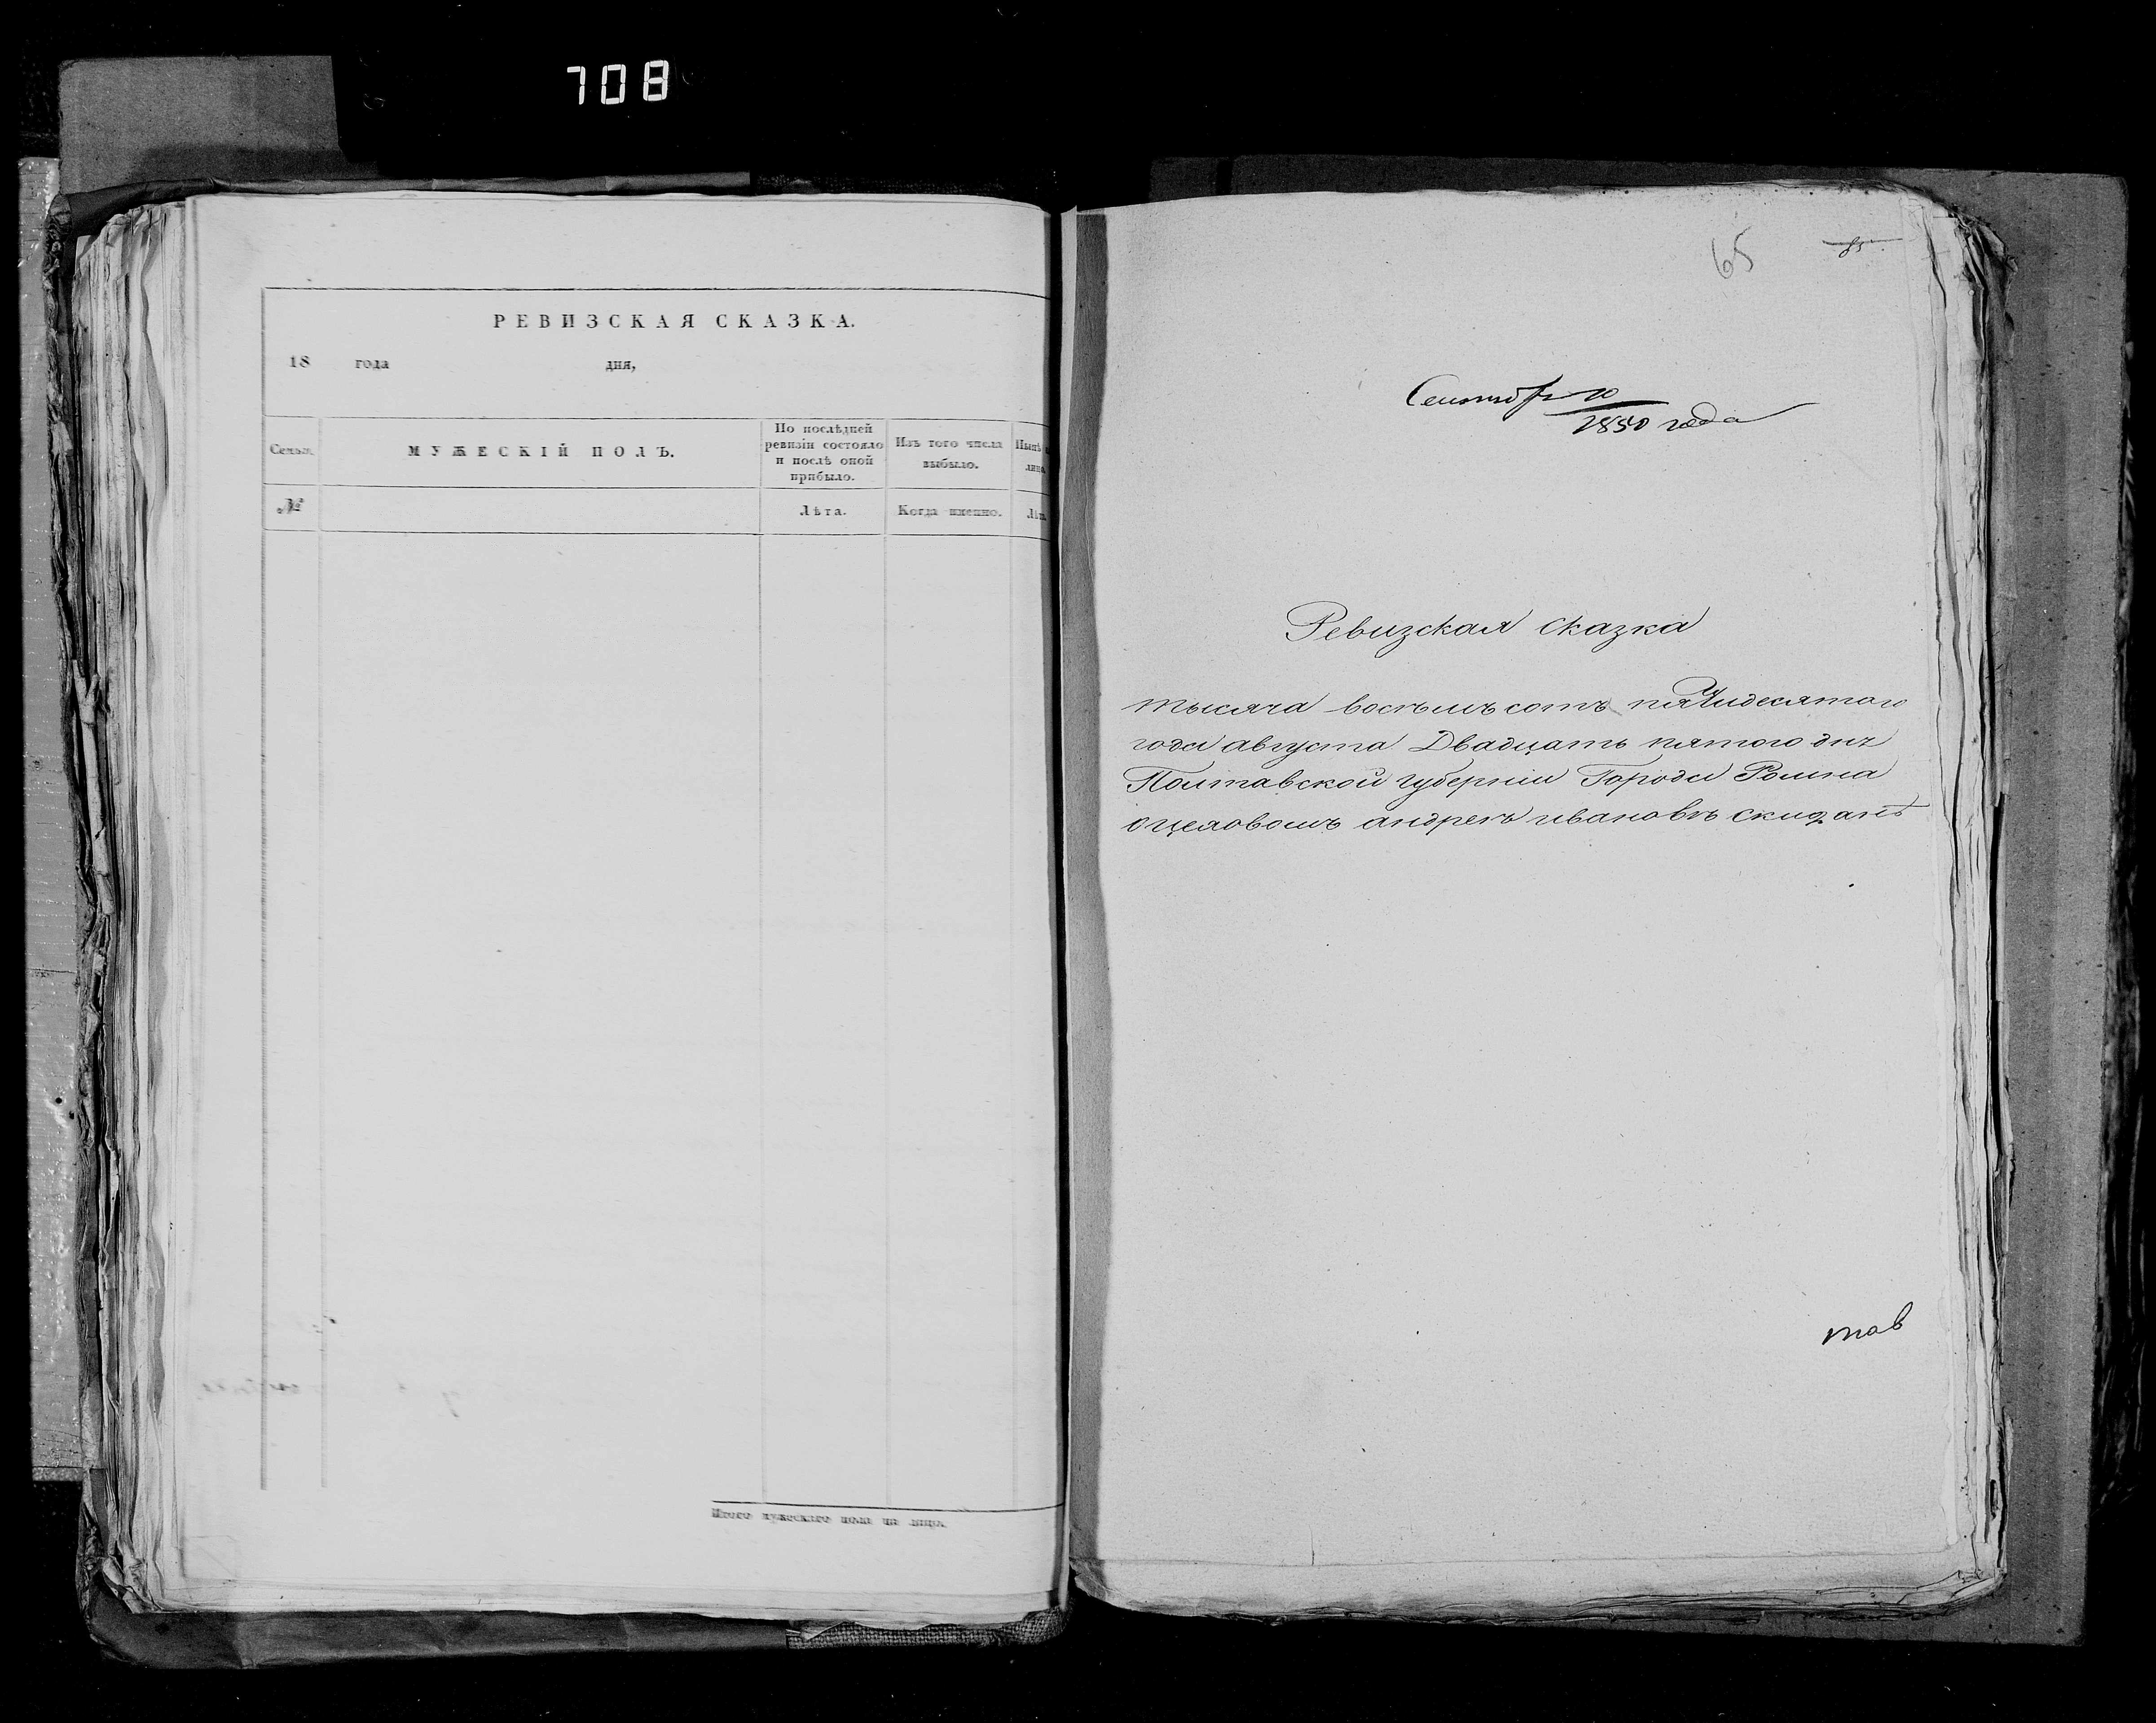 708
РЕВИЗСКАЯ СКАЗКА.
18 года дня,
Семьи.
МУЖЕСКІЙ ПОЛЪ.
По послѣдней
ревизіи состояло
и послѣ оной
прибыло.
Изъ того числа
выбыло.
Нынѣ
лицо.
№
Лѣта.
Когда именно.
Лѣт
Итого мужескаго пола на лицо.
65
85
10
1850 года
Ревизская сказка
тысяча восѣмъ сотъ пятидесятаго
года августа Двадцать пятого дня
Полтавской губерніи Города Ромна
андреѣ ивановѣ скиданѣ
тов